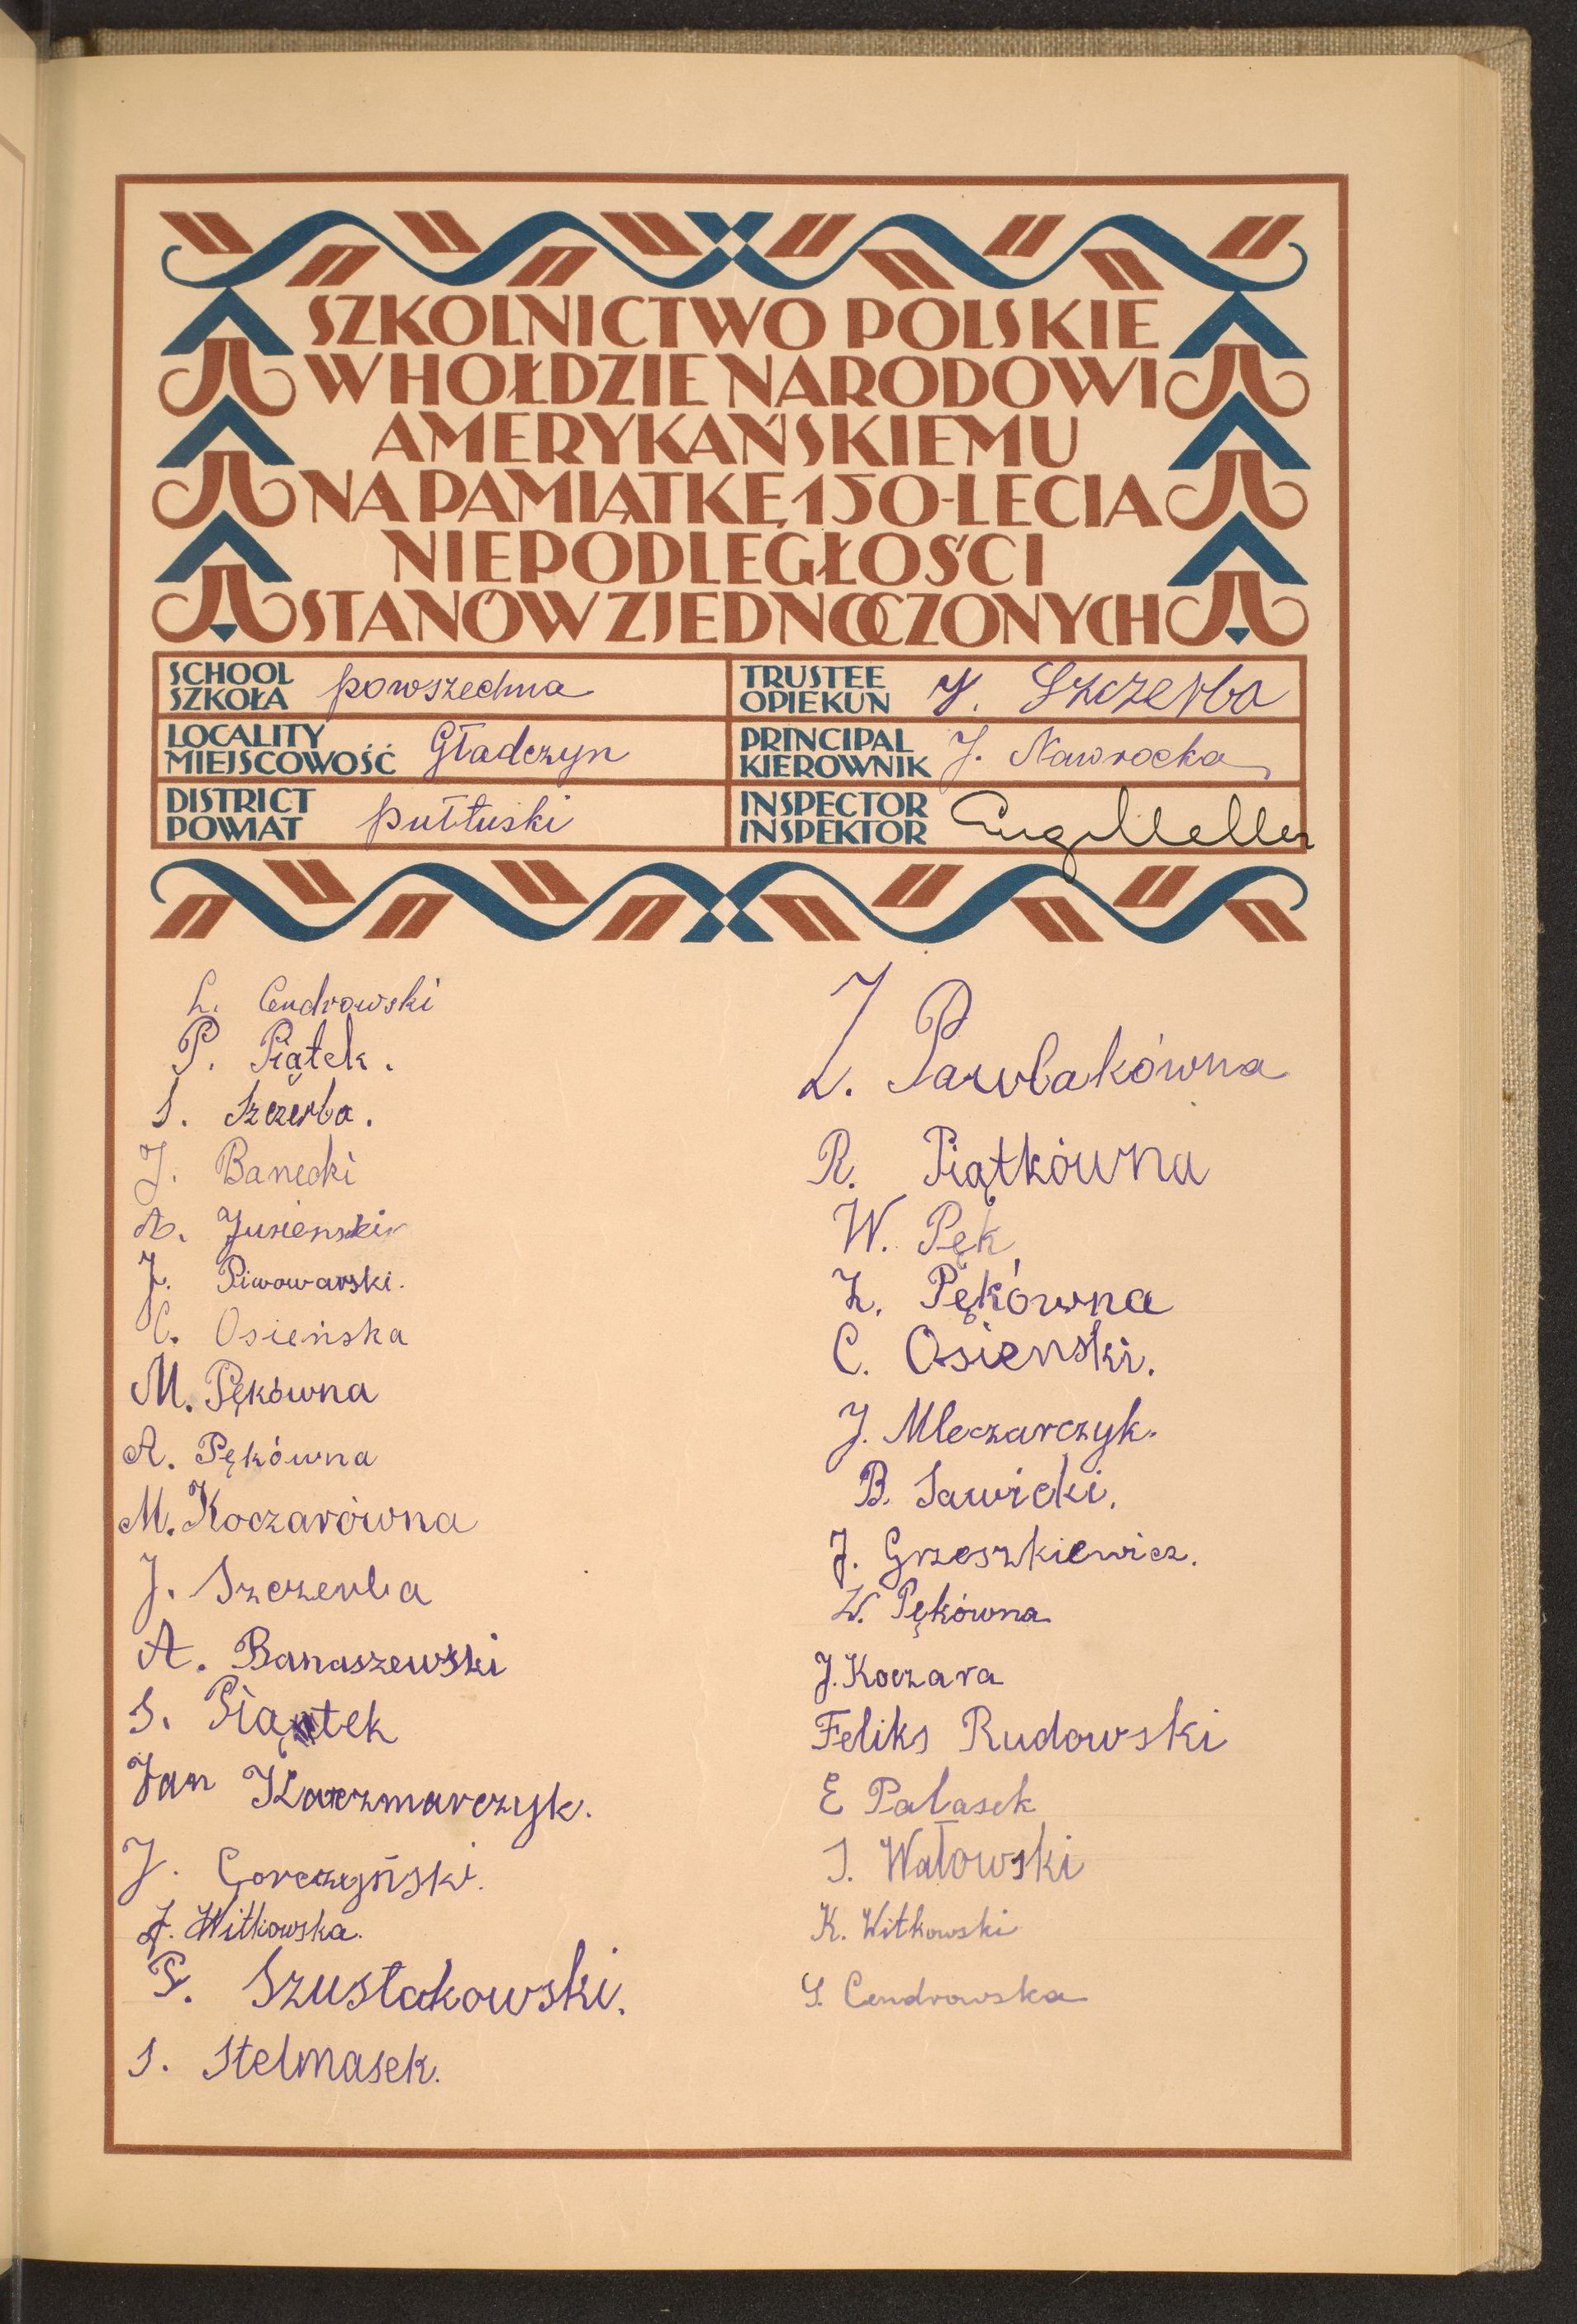 SZKOLNICTWO POLSKIE
W HOŁDZIE NARODOWI
AMERYKAŃSKIEMU
NA PAMIĄTKĘ 150-LECIA
NIEPODLEGŁOŚCI
STANÓW ZJEDNOCZONYCH
SCHOOL
SZKOŁA powszechna
TRUSTEE
OPIEKUN J. Szczerba
LOCALITY
MIEJSCOWOŚĆ Gładczyn
PRINCIPAL
KIEROWNIK J. Nawrocka
DISTRICT
POWIAT pułtuski
INSPECTOR
INSPEKTOR
L. Cendrowski
P. Piątek.
S. Szczerba.
J. Banecki
A. Jusienski
J. Piwowarski.
C. Osieńska
M. Pękówna
A. Pękówna
M. Koczarówna
J. Szczerba
A. Banaszewski
S. Piątek
Jan Kaczmarczyk.
J. Gorczyński.
J. Witkowska.
S. Szustakowski.
S. Stelmasek.
Z. Pawlakówna
R. Piątkówna
W. Pęk
Z. Pękówna
C. Osienski.
J. Mleczarczyk.
B. Sawicki.
J. Grzeszkiewicz.
W. Pękówna
J. Koczara
Feliks Rudowski
E Palasek
S. Watowski
K. Witkowski
S. Cendrowska